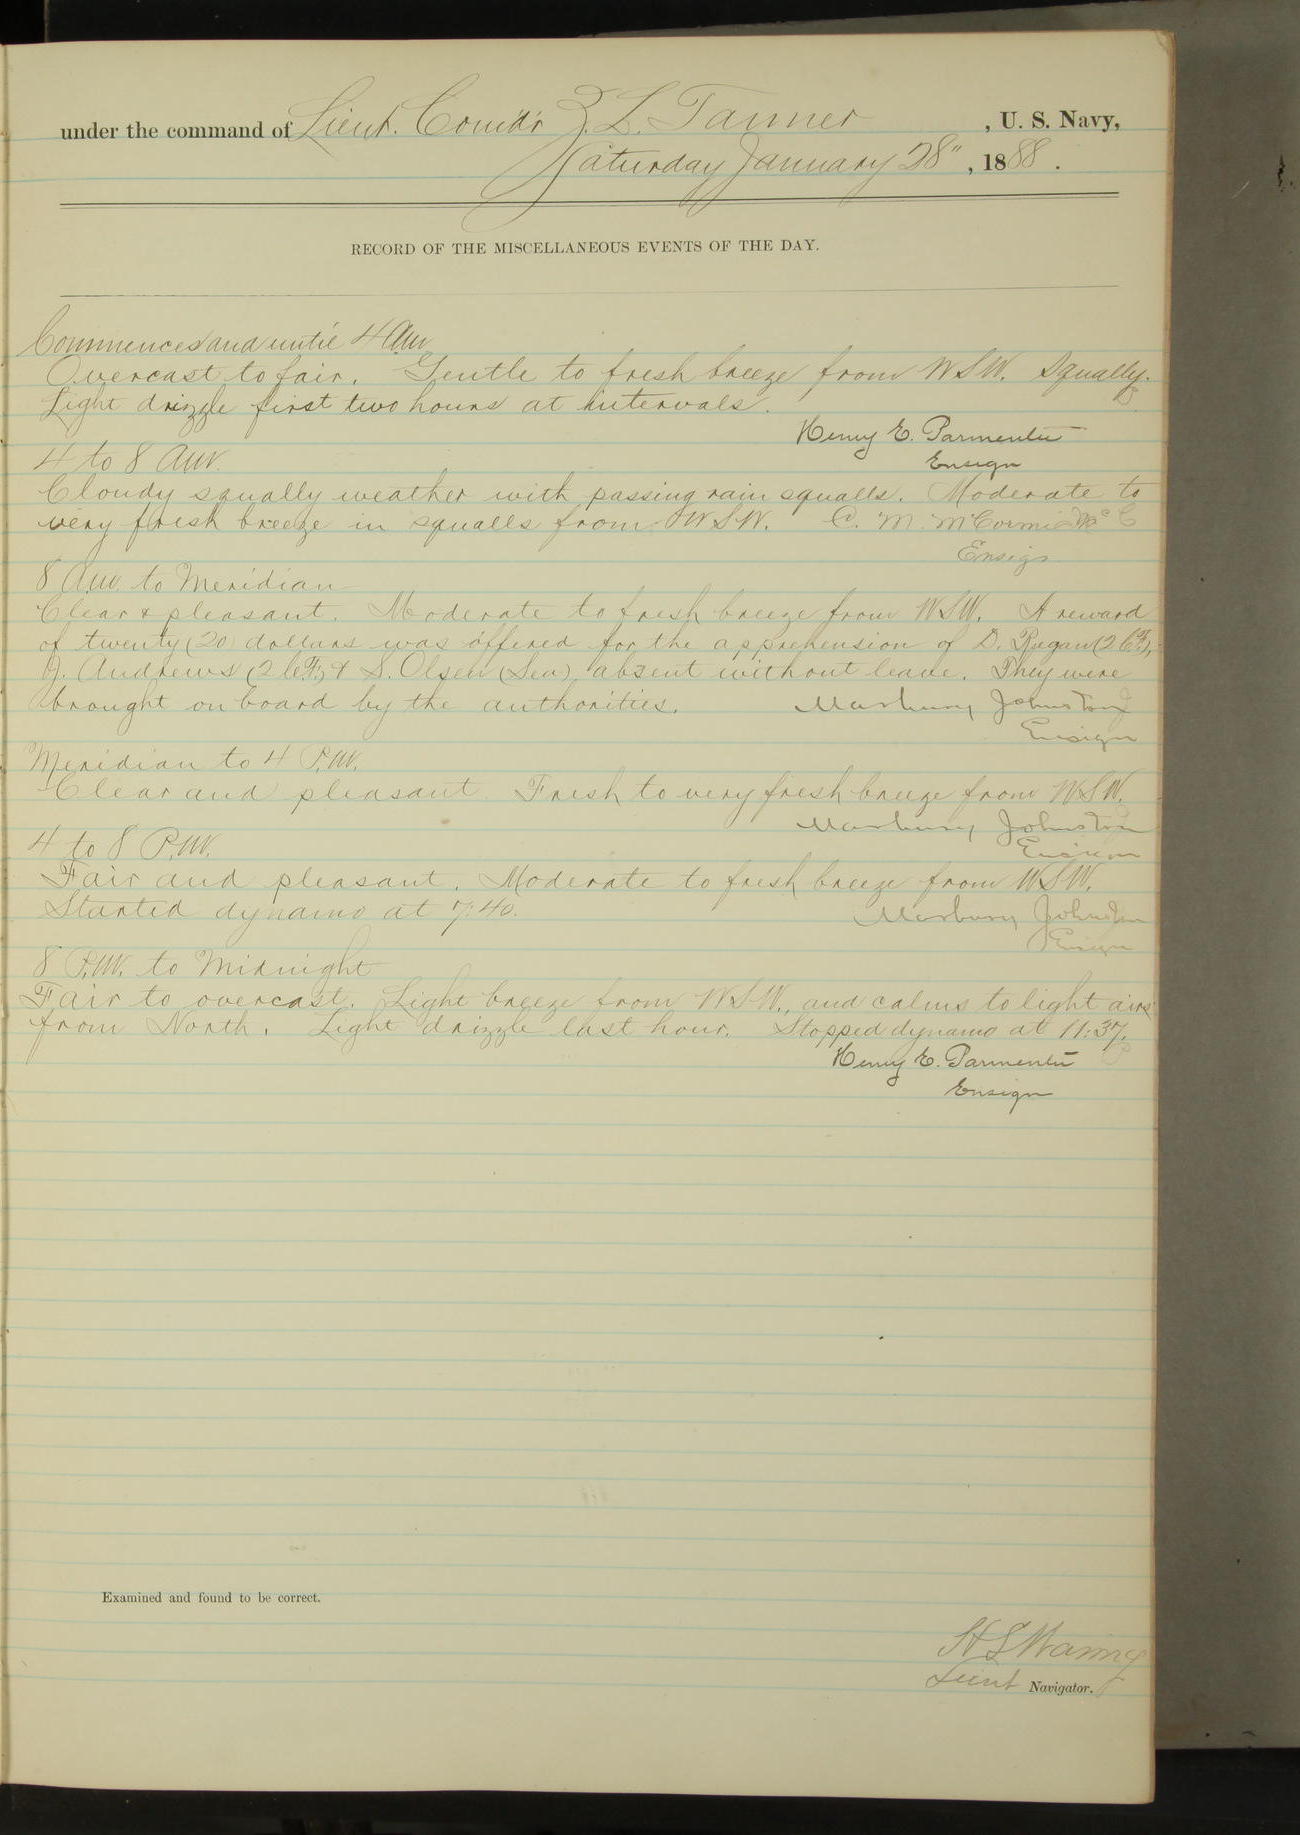 under the command of Lieut. Comd'r Z. L. Tanner, U. S. Navy,
Saturday January 28", 1888.
RECORD OF THE MISCELLANEOUS EVENTS OF THE DAY.
Commences and until 4 A.M.
Overcast to fair. Gentle to fresh breeze from W.S.W. Squally.
Light drizzle first two hours at intervals.
Henry E. Parmenter
Ensign
4 to 8 A.M.
Cloudy squally weather with passing rain squalls. Moderate to
very fresh breeze in squalls from W.S.W. C. M. McCormick
Ensign
8 A.M. to Meridian
Clear & pleasant. Moderate to fresh breeze from W.S.W. A reward
of twenty (20) dollars was offered for the apprehension of D. Regan (2 C.F.),
J. Andrews (2 C.F.) & S. Olsen (Sea) absent without leave. They were
brought on board by the authorities. Marbury Johnston
Ensign
Meridian to 4 P.M.
Clear and pleasant. Fresh to very fresh breeze from W.S.W.
Marbury Johnston
Ensign
4 to 8 P.M.
Fair and pleasant. Moderate to fresh breeze from W.S.W.
Started dynamo at 7:40. Marbury Johnston
Ensign
8 P.M. to Midnight
Fair to overcast. Light breeze from W.S.W., and calms to light airs
from North. Light drizzle last hour. Stopped dynamo at 11:37.
Henry E. Parmenter
Ensign
Examined and found to be correct.
H S Waring
Lieut Navigator.